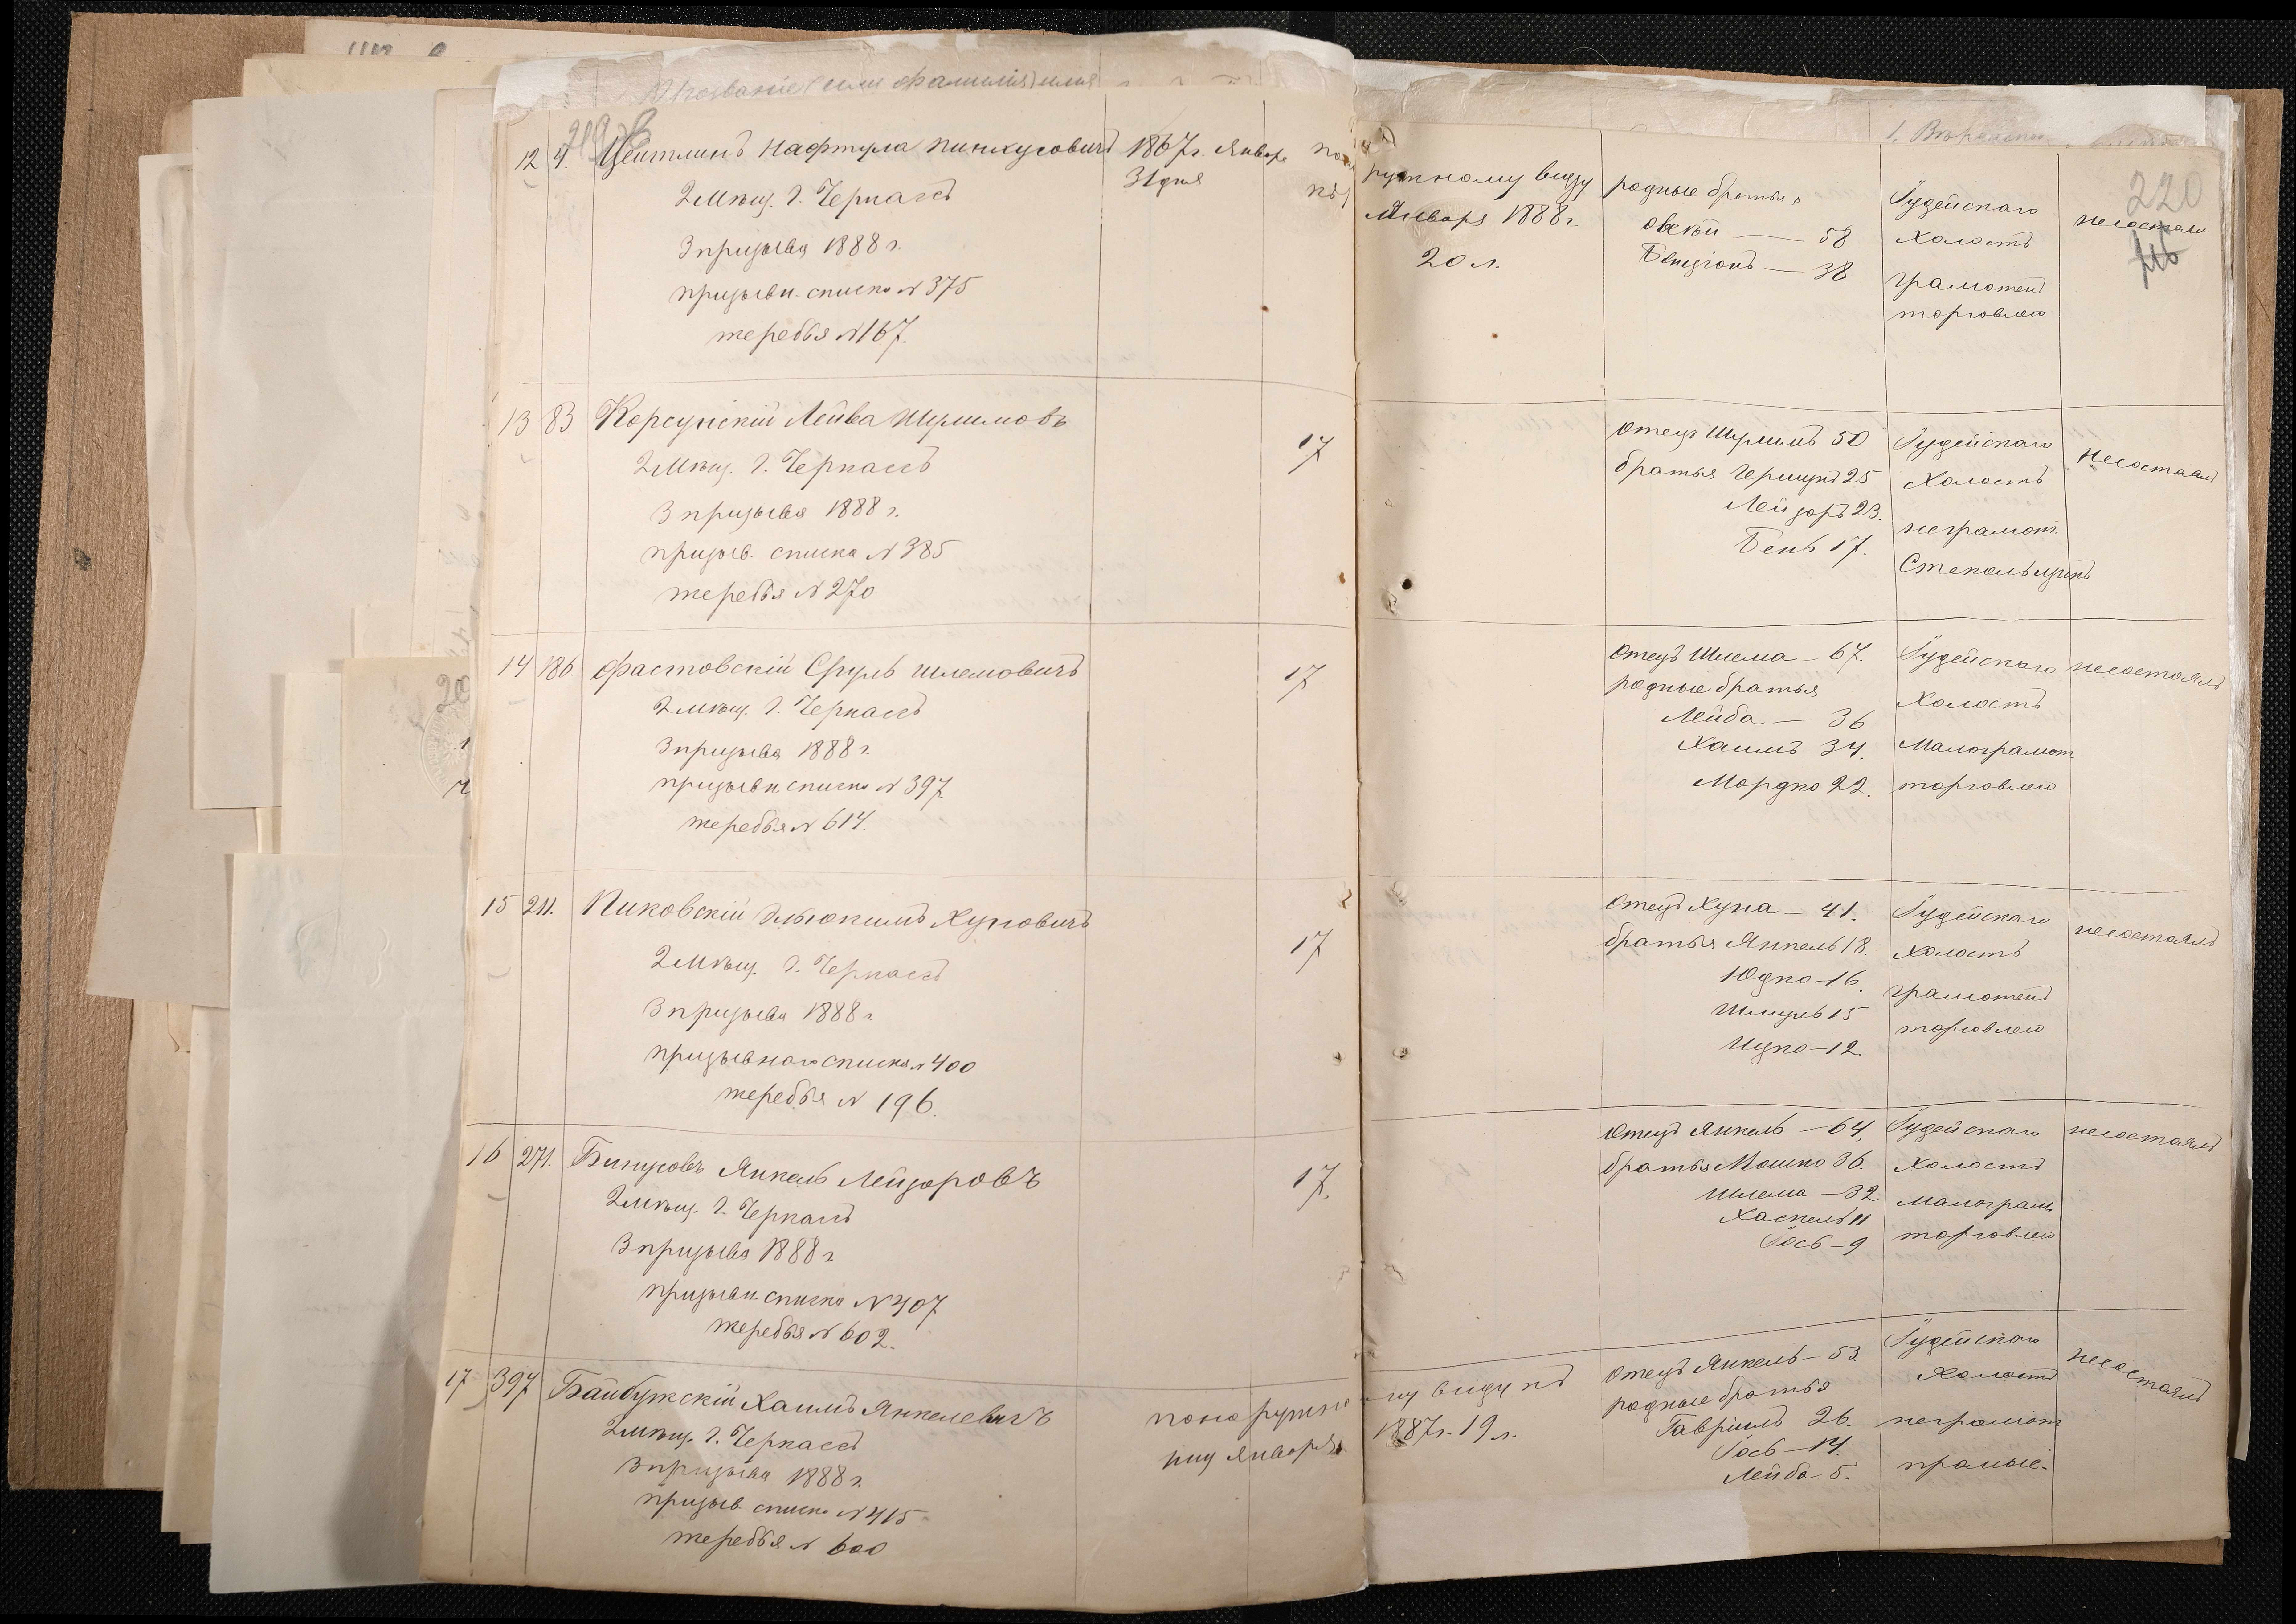 Прозваніе (или фамилія) имя
12 4. Цейтлинъ Нафтула Пинхусовичъ 1867 г. Января
31 дня
2 Мѣщ. г. Черкассъ
3 призыва 1888 г.
призывн. списка № 375
жеребья № 167.
13 83 Корсунскій Лейба Шулимовъ 17
2 Мѣщ. г. Черкассъ
3 призыва 1888 г.
призыв. списка № 385
жеребья № 270
14 186. Фастовскій Сруль Шлемовичъ 17
2 мѣщ. г. Черкассъ
3 призыва 1888 г.
призывн. списка № 397
жеребья № 614.
15 211. Пиковскій Эльюкимъ Хуновичъ 17
2 Мѣщ. г. Черкассъ
3 призыва 1888 г.
призывного списка № 400
жеребья № 196.
16 271. Янкель Лейзоровъ 17.
2 Мѣщ. г. Черкассъ
3 призыва 1888 г.
призывн. списка № 407
жеребья № 602.
17 397 Байбужскій Хаимъ Янкелевичъ по наружно
2 мѣщ. г. Черкассъ
3 призыва 1888 г. Января
призыв. списка № 415
жеребья № 600
220
ружному виду родные братья Іудейскаго не состоялъ
Января 1888 г. Овсей — 58 Холостъ
20 л. Бенціонъ — 38 грамотенъ
торговлею
Отецъ Шулимъ 50 Іудейскаго не состоялъ
братья Гершунъ 25 Холостъ
Лейзоръ 23. неграмот.
Бень 17. Стекольщикъ
Отецъ Шлема — 67. Іудейскаго не состоялъ
родные братья Холостъ
Лейба — 36
Хаимъ 34. Малограмот.
Мордко 22. торговлею
Отецъ Хуна — 41. Іудейскаго не состоялъ
братья Янкель 18. Холостъ
Юдко — 16. грамотенъ
Шмуль 15 торговлею
Ицко — 12.
Отецъ Янкель — 64, Іудейскаго не состоялъ
братья Мошко 36. Холостъ
Шлема — 32 Малограм.
Хаскель 11 торговлею
Іось — 9
му виду къ Отецъ Янкель — 53. Іудейскаго не состоялъ
1887 г. 19 л. родные братья Холостъ
Гавріилъ 26. неграмот.
Іось — 14.
Лейба 5.